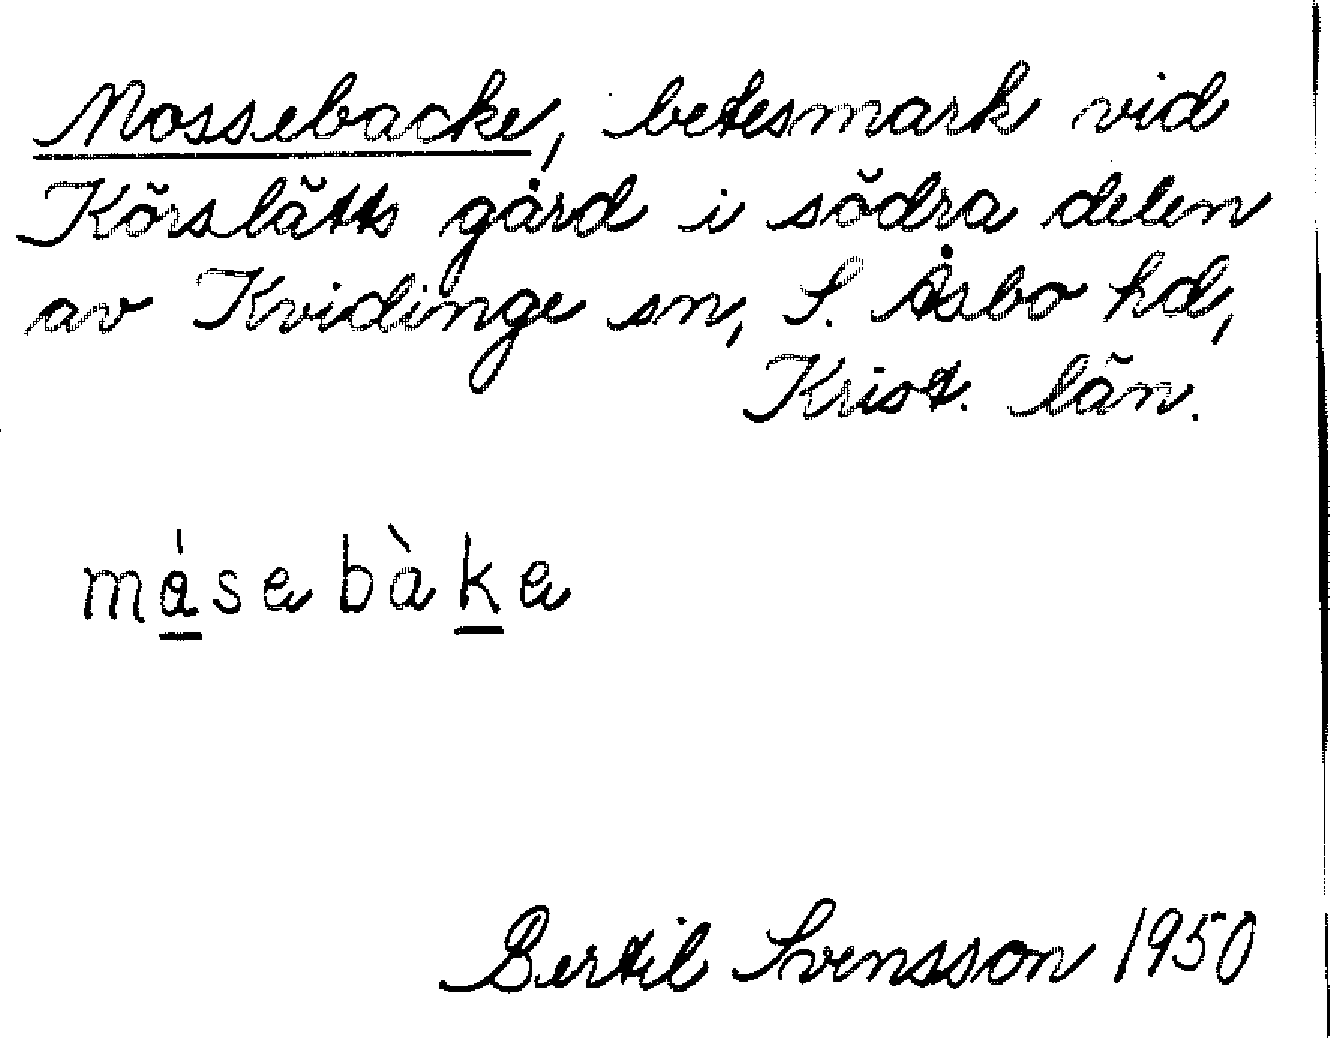 Mossebacke, betesmark vid
Körslätts gård i södra delen
av Kvidinge sn, S. Åsbo hd,
Krist. län.
måsebàke
Bertil Svensson 1950